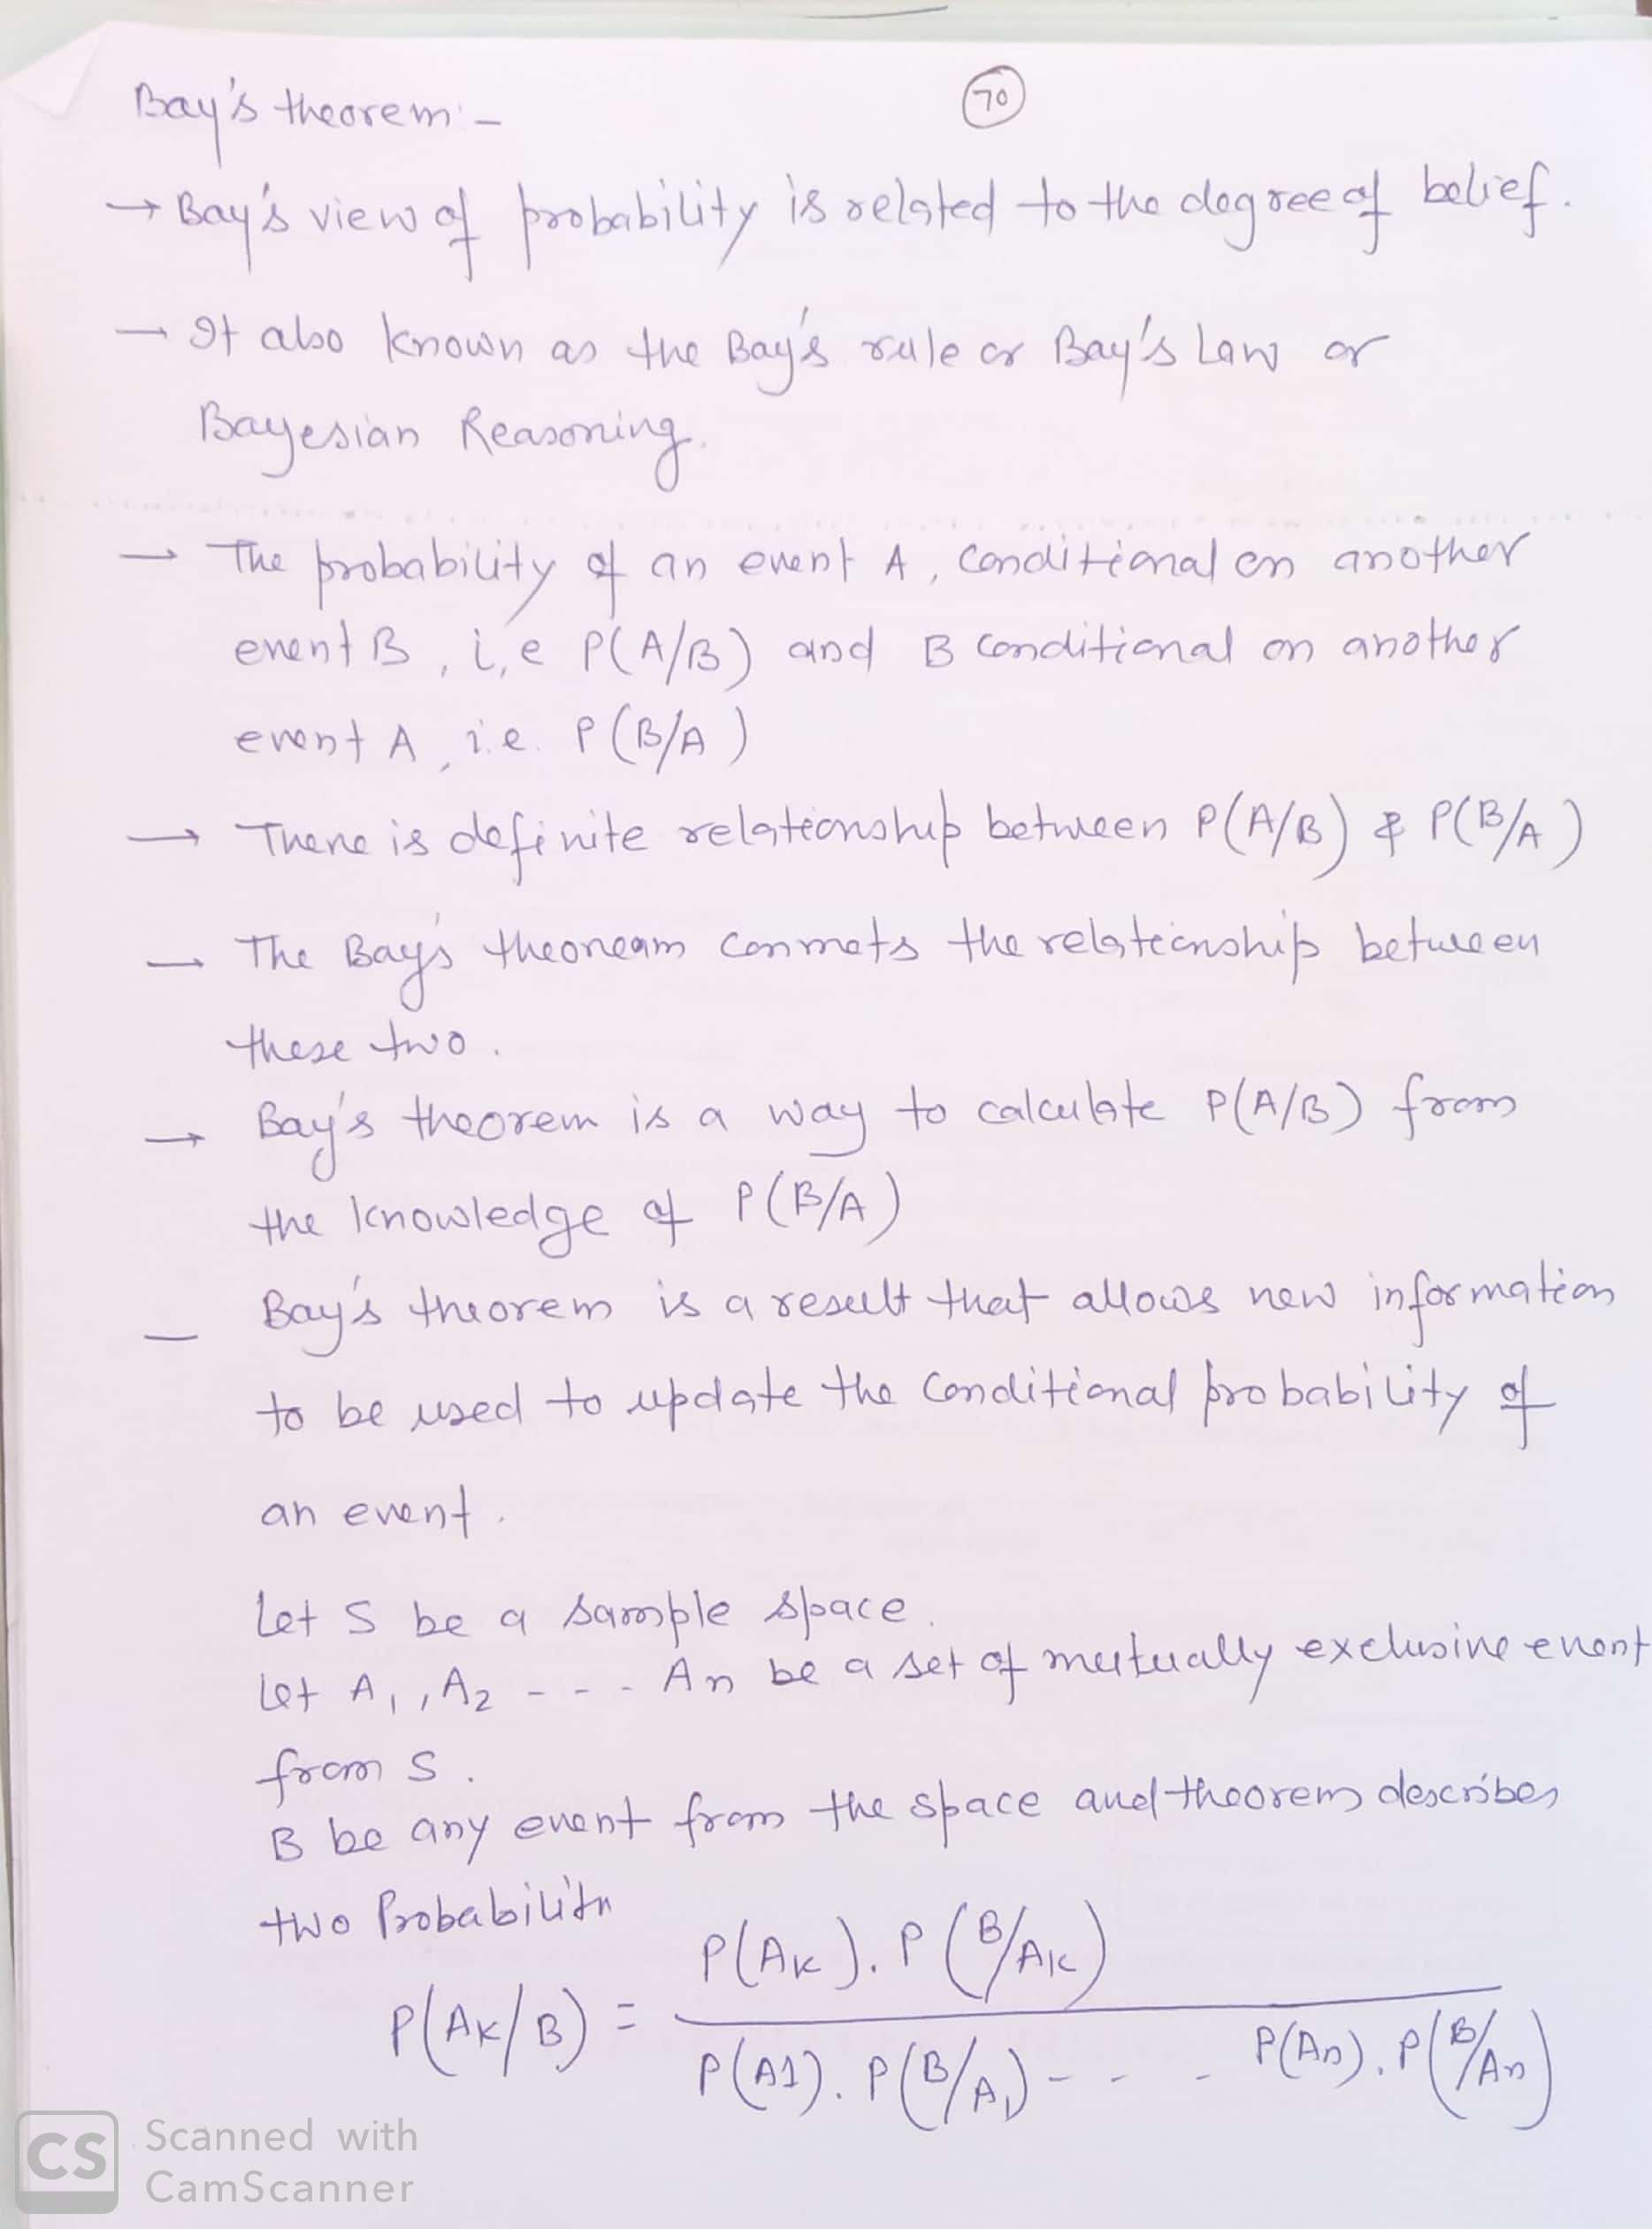 Bay's theorem:-
70
→ Bay's view of probability is related to the degree of belief.
→ It also known as the Bay's rule or Bay's Law or
Bayesian Reasoning.
→ The probability of an event A, conditional on another
event B, i,e P(A/B) and B conditional on another
event A, i.e. P(B/A)
→ There is definite relationship between P(A/B) & P(B/A)
— The Bay's theoneam conmets the relationship between
these two.
→ Bay's theorem is a way to calculate P(A/B) from
the knowledge of P(B/A)
— Bay's theorem is a result that allows new information
to be used to update the conditional probability of
an event.
Let S be a sample space.
Let A1, A2 - - - An be a set of mutually exclusive event
from S.
B be any event from the space and theorem describes
two
P(AK). P(B/AK)
P(AK/B) =
P(A1). P(B/A1) - - - P(An). P(B/An)
CS
Scanned with
CamScanner